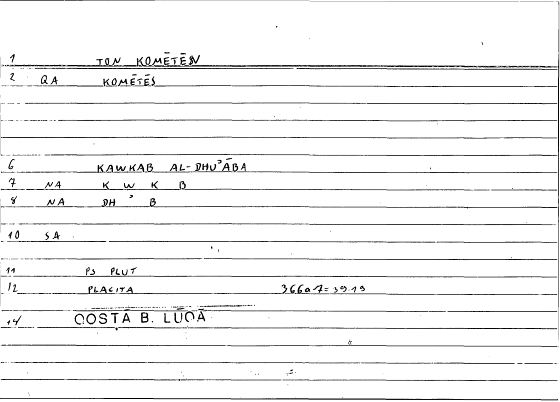 1 TON KOMĒTĒN
2 QA KOMĒTĒS
6 KAWKAB AL-DHUʾĀBA
7 NA K W K B
8 NA DH ʾ B
10 SA
11 PS PLUT
12 PLACITA 366a7=3919
14 QOSTĀ B. LŪQĀ